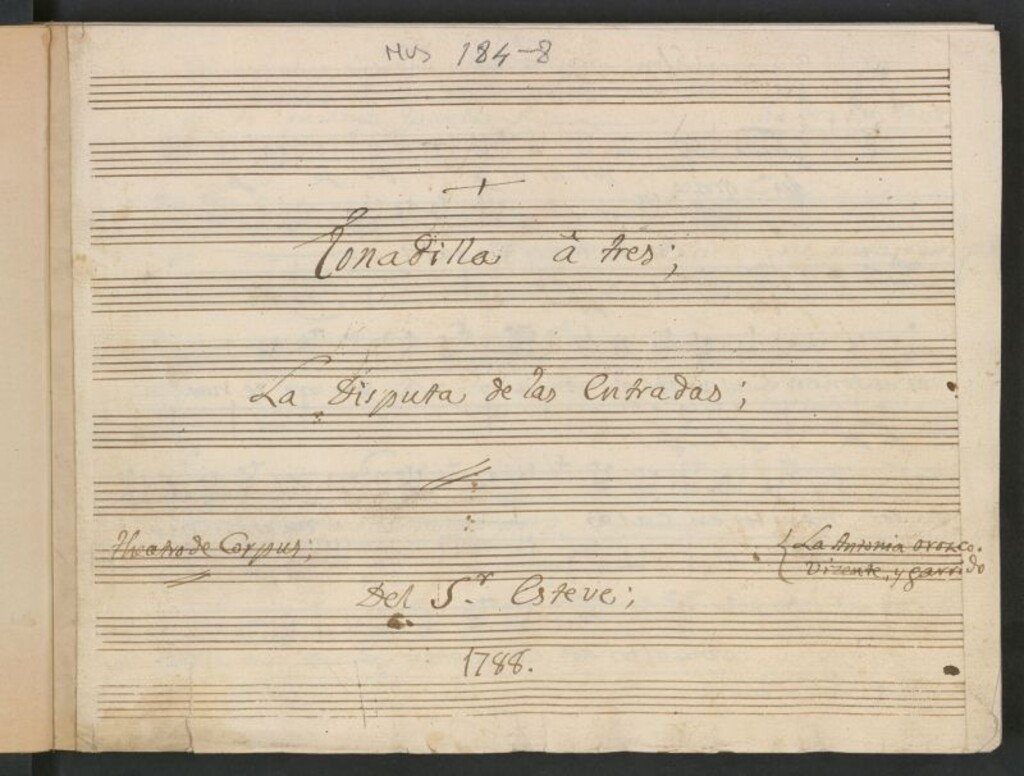 MUS 184-8
Tonadilla â tres;
La Disputa de las Entradas;
theatro de Corpus;
La Antonia orozco.
Vizente, y garrido
Del S.r Esteve;
1788.